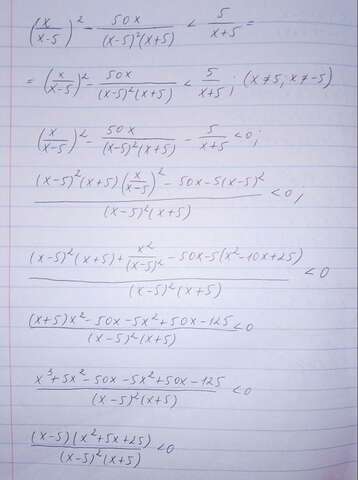 (x/(x-5))² - 50x/((x-5)²(x+5)) < 5/(x+5) =
= (x/(x-5))² - 50x/((x-5)²(x+5)) < 5/(x+5); (x≠5, x≠-5)
(x/(x-5))² - 50x/((x-5)²(x+5)) - 5/(x+5) < 0;
((x-5)²(x+5)(x/(x-5))² - 50x - 5(x-5)²)/((x-5)²(x+5)) < 0;
((x-5)²(x+5) + x²/(x-5)² - 50x - 5(x²-10x+25))/((x-5)²(x+5)) < 0
((x+5)x² - 50x - 5x² + 50x - 125)/((x-5)²(x+5)) < 0
(x³ + 5x² - 50x - 5x² + 50x - 125)/((x-5)²(x+5)) < 0
((x-5)(x²+5x+25))/((x-5)²(x+5)) < 0